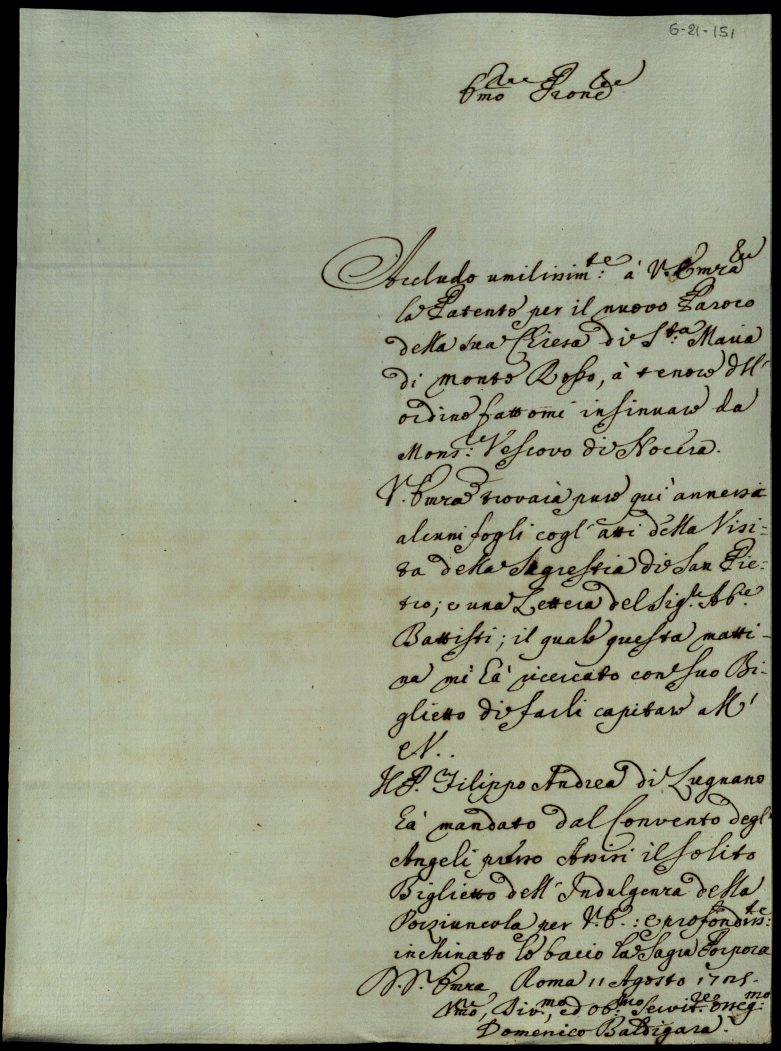 6-21-151
Emo dre Prone Sre
Accludo umilissim:te à V. Emza Sre
la Patente per il nuovo Paroco
della sua Chiesa di S:ta Maria
di monte Rosso, à tenore dell'
ordine fattomi insinuare da
Mons:re Vescovo di Nocera.
V. Emza troverà pure qui annessi
alcuni fogli cogl'atti della Visi=
ta della Sagrestia di San Pie=
tro; e una Lettera del Sig:r Ab:e
Battisti; il quale questa matti=
na mi hà ricercato con suo Bi=
glietto di farli capitare all'
E.V..
Il P. Filippo Andrea di Lugnano
hà mandato dal Convento degl'
Angeli presso Assisi il solito
Biglietto dell'Indulgenza della
Porziuncola per V.E.: e profondiss:te
inchinato le bacio la Sagra Porpora
D. V. Emza Roma 11 Agosto 1725.
Vmo, Div:mo, ed Ob:mo Servit:re osseq:mo
Domenico Baldigara.